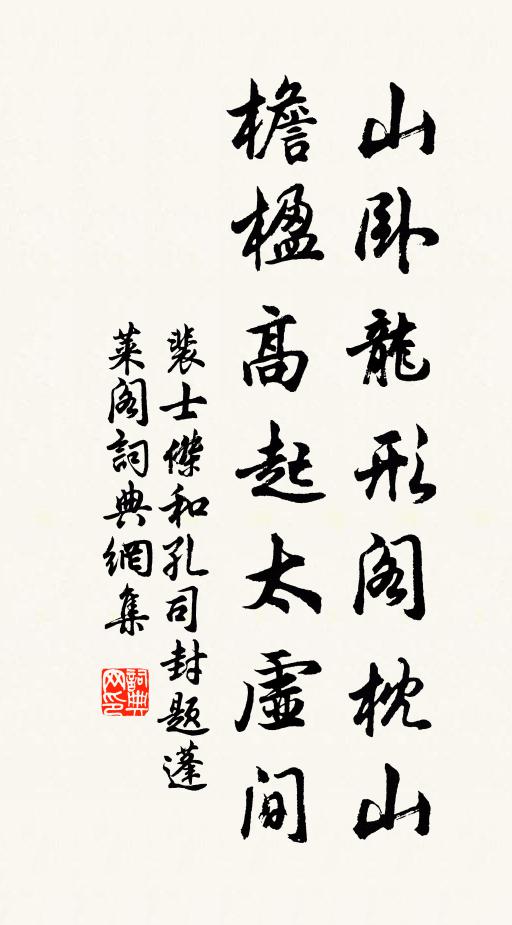 山卧龍形阁枕山
檐楹高起太虛间
裴士傑和孔司封题蓬
莱阁詞典網集
詞典
网印